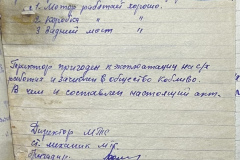 1. Мотор работает хорошо.
2. Коробка " "
3. Задний мост " "
Трактор пригоден к эксплуатации на с/х
работах и в общество Коблево.
В чем и составлен настоящий акт.
Директор МТС
Ст. механик